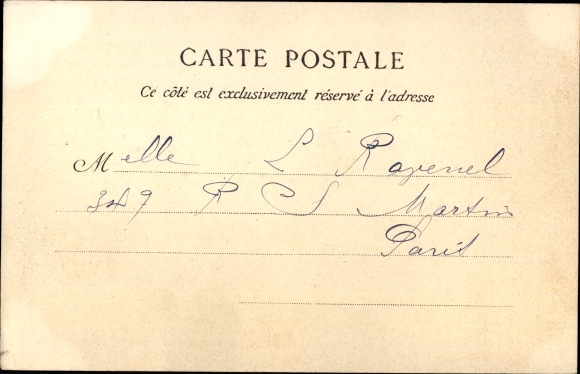 CARTE POSTALE
Ce côté est exclusivement réservé à l'adresse
Melle L Ravenel
349 R S Martin
Paris